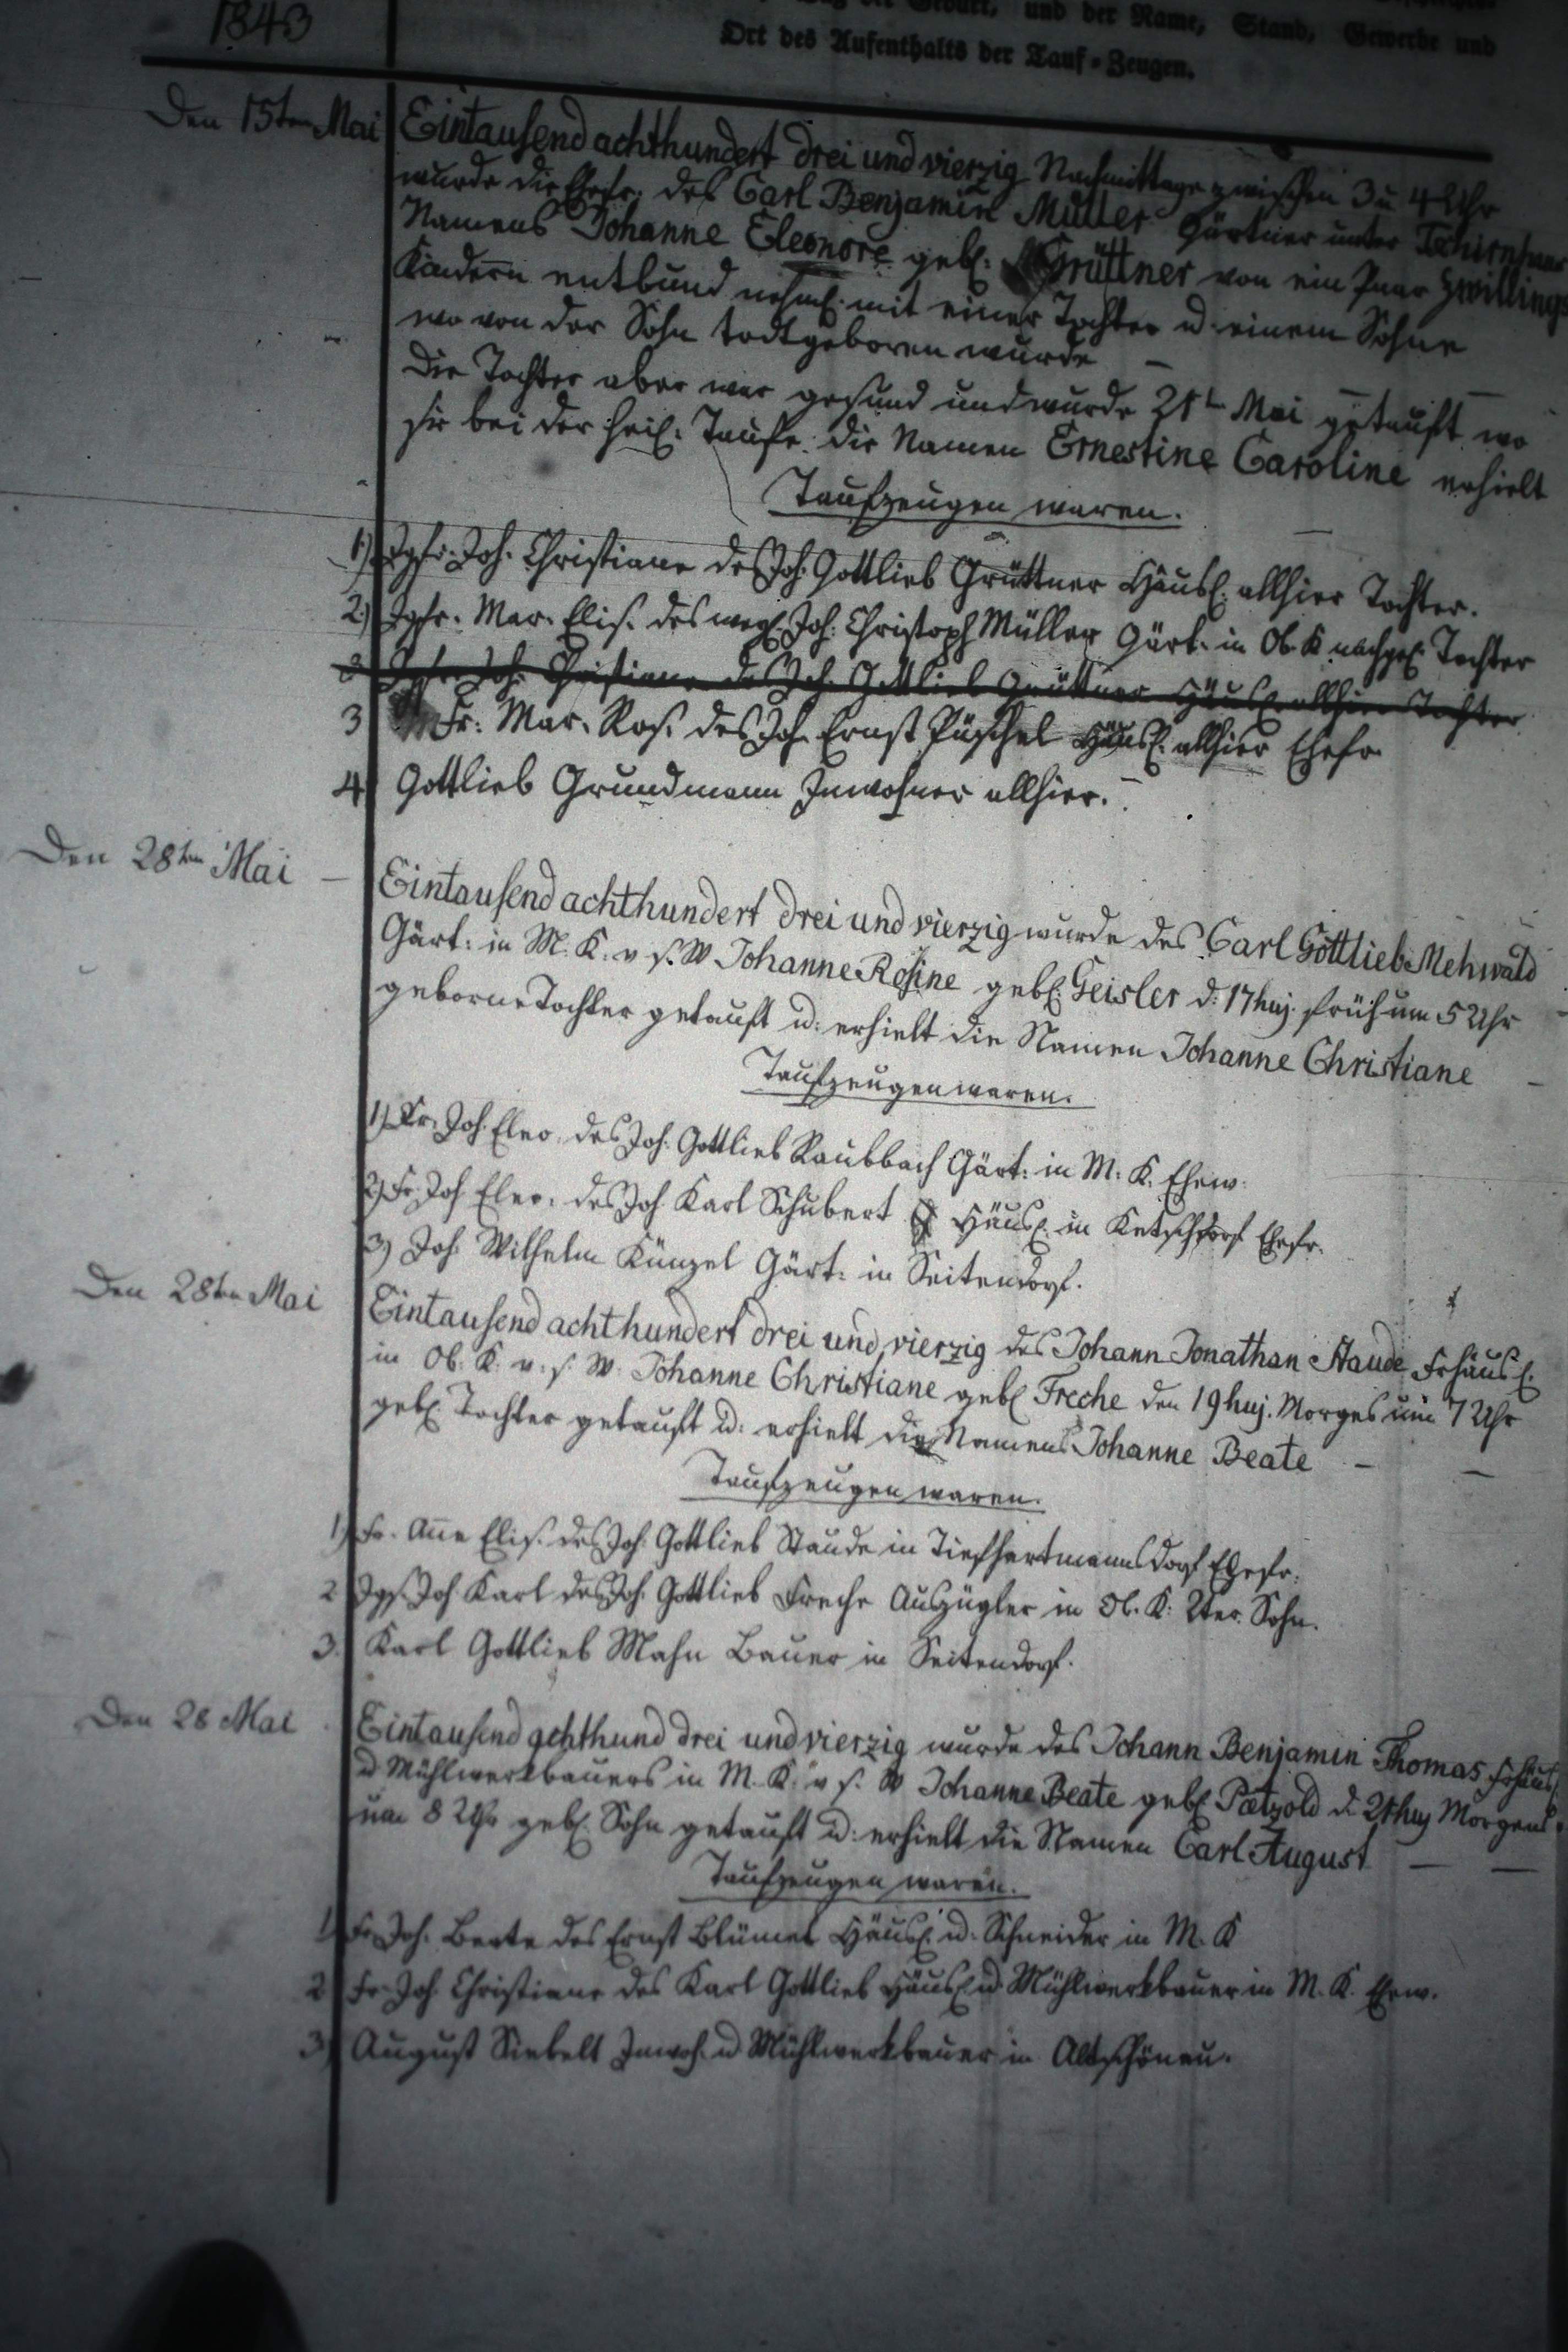 1843
Tag der Geburt, und der Name, Stand, Gewerbe und
Ort des Aufenthalts der Tauf-Zeugen.
Den 15ten Mai
Eintausend achthundert drei und vierzig Nachmittags zwischen 3 u 4 Uhr
wurde die Ehefr. des Carl Benjamin Müller Gärtner unter Tschirnhaus
Namens Johanne Eleonore geb. Grüttner von ein Paar Zwillings
Kindern entbund nehml. mit einer Tochter u. einem Sohne
wo von der Sohn todtgeboren wurde –
Die Tochter aber war gesund und wurde 21t Mai getauft wo
sie bei der heil. Taufe die Namen Ernestine Caroline erhielt
Taufzeugen waren.
1) Jgfr. Joh. Christiane des Joh. Gottlieb Grüttner Häusl. allhier Tochter.
2) Jgfr. Mar. Elis. des weyl. Joh. Christoph Müller Gärt. in Ob. K. nachgel. Tochter
3 Jgfr. Joh. Christiane des Joh. Gottlieb Grüttner Häusl. allhier Tochter
3 Fr. Mar. Ros. des Joh. Ernst Püschel Häusl. allhier Ehefr.
4 Gottlieb Grundmann Inwohner allhier. –
Den 28ten Mai –
Eintausend achthundert drei und vierzig wurde des Carl Gottlieb Mehwald
Gärt. in M. K. v. s. W Johanne Rosine geb. Geisler d. 17 huj. früh um 5 Uhr
geborne Tochter getauft u. erhielt die Namen Johanne Christiane –
Taufzeugen waren.
1) Fr. Joh. Eleo. des Joh. Gottlieb Raubbach Gärt. in M. K. Ehew.
2) Fr. Joh Eleo. des Joh Karl Schubert Häusl. in Ketschdorf Ehefr.
3) Joh. Wilhelm Künzel Gärt. in Seitendorf.
Den 28ten Mai
Eintausend achthundert drei und vierzig des Johann Jonathan Staude Frhäusl.
in Ob. K. v. s. W. Johanne Christiane geb. Freche den 19 huj. Morges um 7 Uhr
geb. Tochter getauft u. erhielt die Namens Johanne Beate – –
Taufzeugen waren.
1) Fr. Anne Elis. des Joh. Gottlieb Staude in Tiefhartmannsdorf Ehefr.
2 Jgs. Joh Karl des Joh. Gottlieb Freche Auszügler in Ob. K. 2ter Sohn.
3. Karl Gottlieb Mahn Bauer in Seitendorf.
Den 28 Mai
Eintausend achthund drei und vierzig wurde des Johann Benjamin Thomas Frhäusl.
u Mühlwerkbauers in M. K. v s. W Johanne Beate geb. Pätzold d. 21 huj Morgens
um 8 Uhr geb. Sohn getauft u. erhielt die Namen Carl August – –
Taufzeugen waren.
1) Fr. Joh. Beate des Ernst Blümel Häusl. u. Schneider in M. K
2 Fr. Joh. Christiane des Karl Gottlieb Häusl. u Mühlwerkbauer in M. K. Ehew.
3) August Siebelt Inwoh. u Mühlwerkbauer in Altschönau.